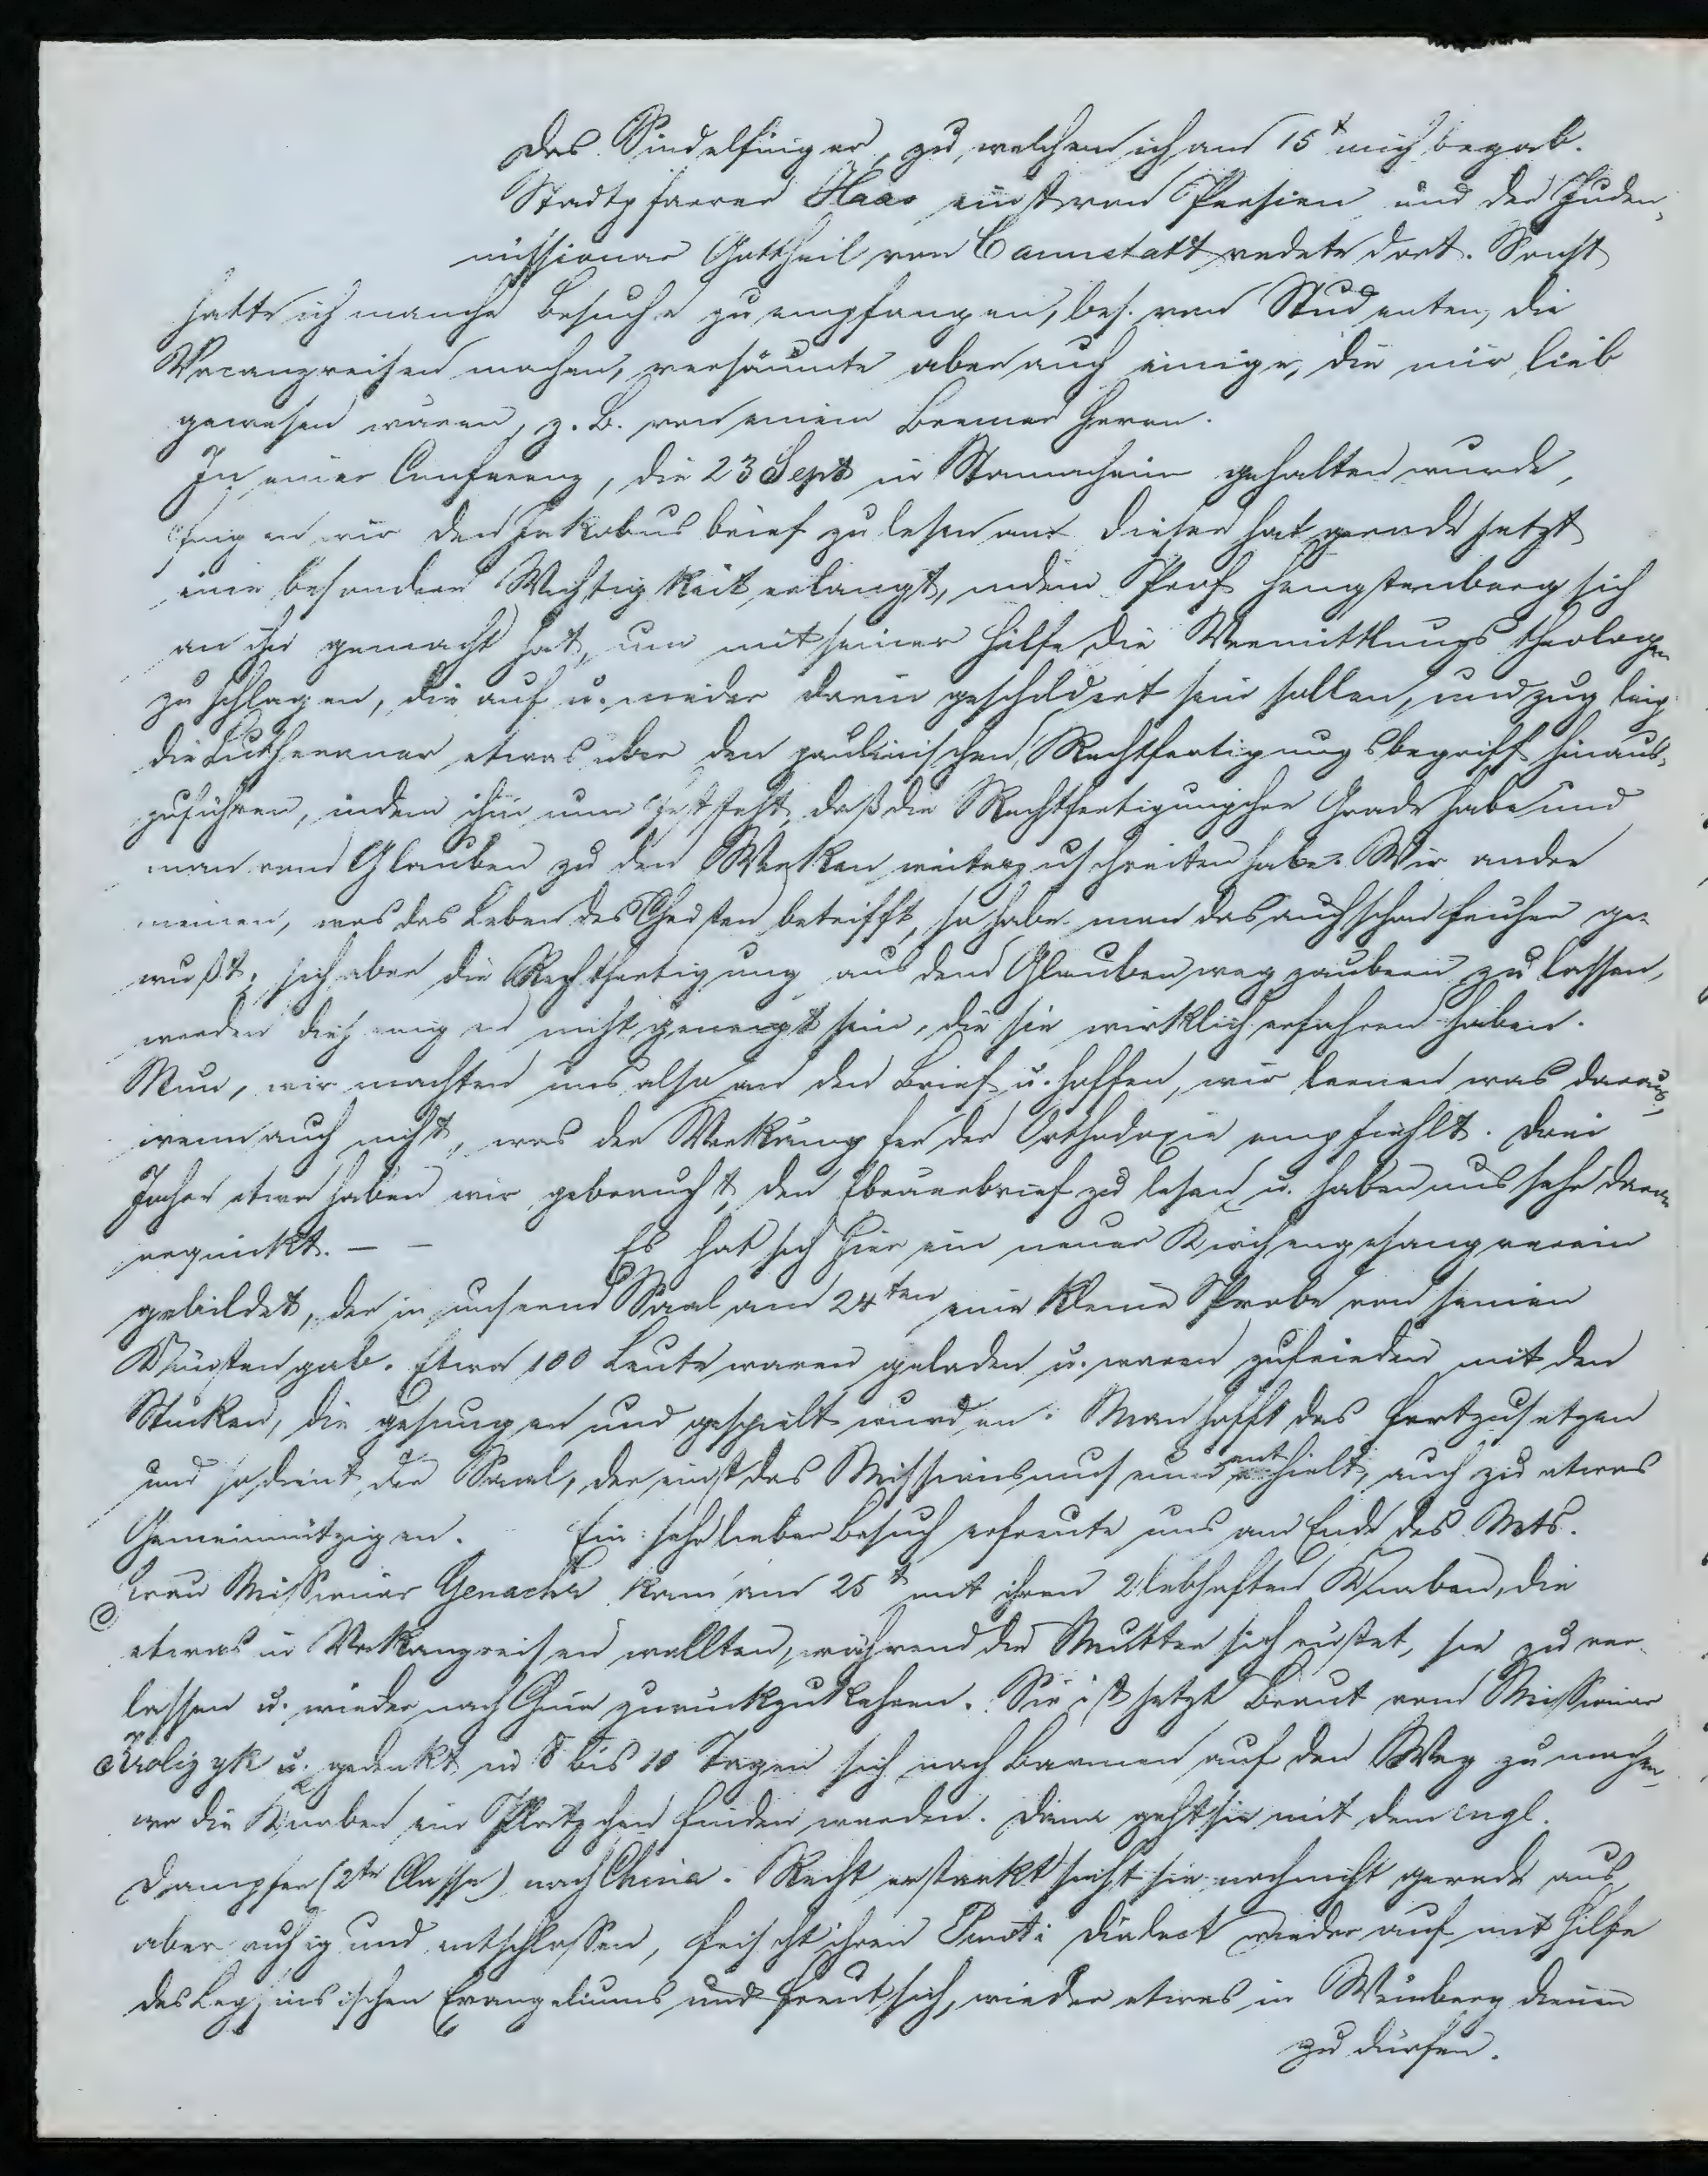 das Sindelfinger, zu welchem ich am 15t mich begab.
Stadtpfarrer Haas einst von Persien und der Juden-
missionar Gottheil von Cannstatt redete dort. Sonst
hatte ich manche Besuche zu empfangen, bes. von Studenten, die
Vacanzreisen machen, versäumte aber auch einige, die mir lieb
gewesen wären, z. B. von einem Bremer Herrn.
In einer Conferenz, die 23 Sept in Stammheim gehalten wurde,
fingen wir den Jakobusbrief zu lesen an. Dieser hat gerade jetzt
eine besondere Wichtigkeit erlangt, indem Prof Hengstenberg sich
an ihn gemacht hat, um mit seiner Hilfe die Vermittlungstheologen
zu schlagen, die auf u. nieder darin geschildert sein sollen, und zugleich
die Lutheraner etwas über den paulinischen Rechtfertigungsbegriff hinaus-
zuführen, indem ihm nun feststeht, daß die Rechtfertigung ihre Grade habe und
man vom Glauben zu den Werken weiterzuschreiten habe. Wir andre
meinen, was das Leben des Christen betrifft, so habe man das auch schon früher ge-
wußt; sich aber die Rechtfertigung aus dem Glauben wegzaubern zu lassen,
werden diejenigen nicht geneigt sein, die sie wirklich erfahren haben.
Nun, wir machten uns also an den Brief u. hoffen, wir lernen was daraus,
wenn auch nicht, was der Verkämpfer der Orthodoxie empfiehlt. Drei
Jahre etwa haben wir gebraucht, den Ebräerbrief zu lesen u. haben uns sehr daran
erquickt. — — Es hat sich hier ein neuer Kirchengesangverein
gebildet, der in unserem Saal am 24ten eine kleine Probe von seinen
Künsten gab. Etwa 100 Leute waren geladen u. waren zufrieden mit den
Stücken, die gesungen und gespielt wurden. Man hofft das fortzusetzen
und so dient der Saal, der einst das Missionsmuseum enthielt, auch zu etwas
Gemeinnützigen. Ein sehr lieber Besuch erfreute uns am Ende des Mts.
Frau Missionar Genähr kam am 25t mit ihren 2 lebhaften Knaben, die
etwas in Vakanz reisen wollten, während die Mutter sich rüstet, sie zu ver-
lassen u. wieder nach China zurückzukehren. Sie ist jetzt Braut vom Missionar
Krolczyk u. gedenkt in 8 bis 10 Tagen sich nach Barmen auf den Weg zu machen,
wo die Knaben ein Plätzchen finden werden. Dann geht sie mit dem engl.
Dampfer (2te Classe) nach China. Recht erstarkt sieht sie noch nicht gerade aus,
aber ruhig und entschlossen, frischt ihren Punti Dialect wieder auf mit Hilfe
des Lepsiusischen Evangeliums und freut sich, wieder etwas im Weinberg dienen
zu dürfen.